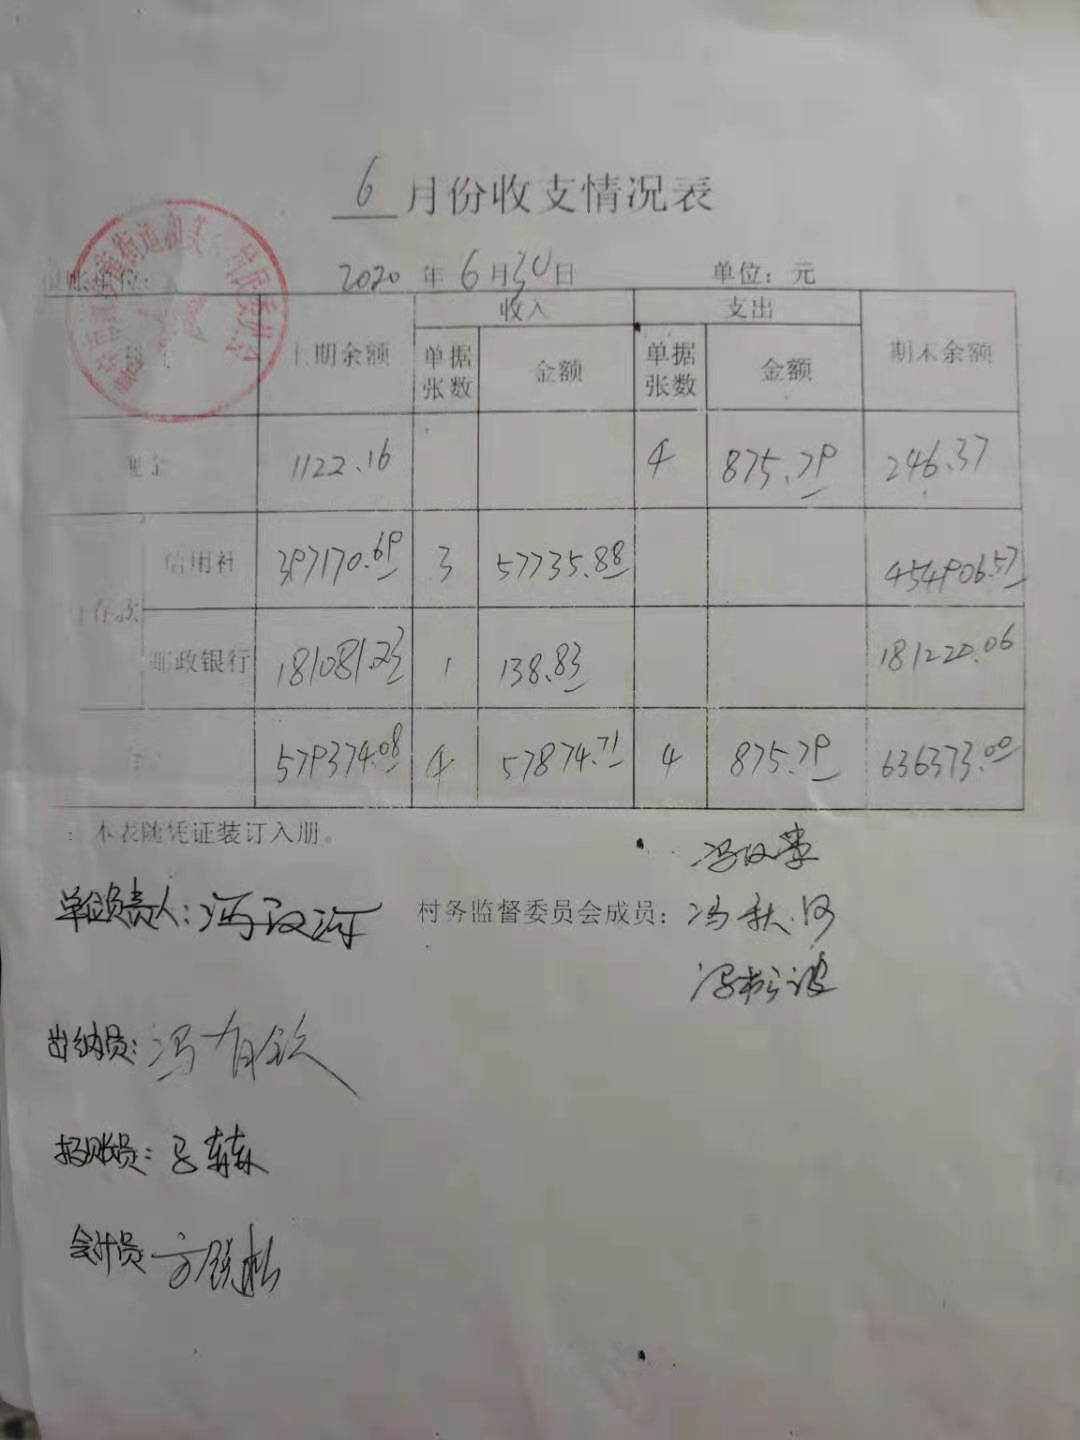 6月份收支情况表
2020年6月30日 单位：元
上期余额 收入 支出 期末余额
单据张数 金额 单据张数 金额
现金 1122.16 4 875.79 246.37
存款 信用社 397170.69 3 57735.88 454906.57
邮政银行 181081.23 1 138.83 181220.06
579374.08 4 57874.71 4 875.79 636373.00
：本表随凭证装订入册。
单位负责人：冯汉
村务监督委员会成员：冯汉
冯秋河
冯 波
出纳员：冯有钦
报账员：
会计员 方